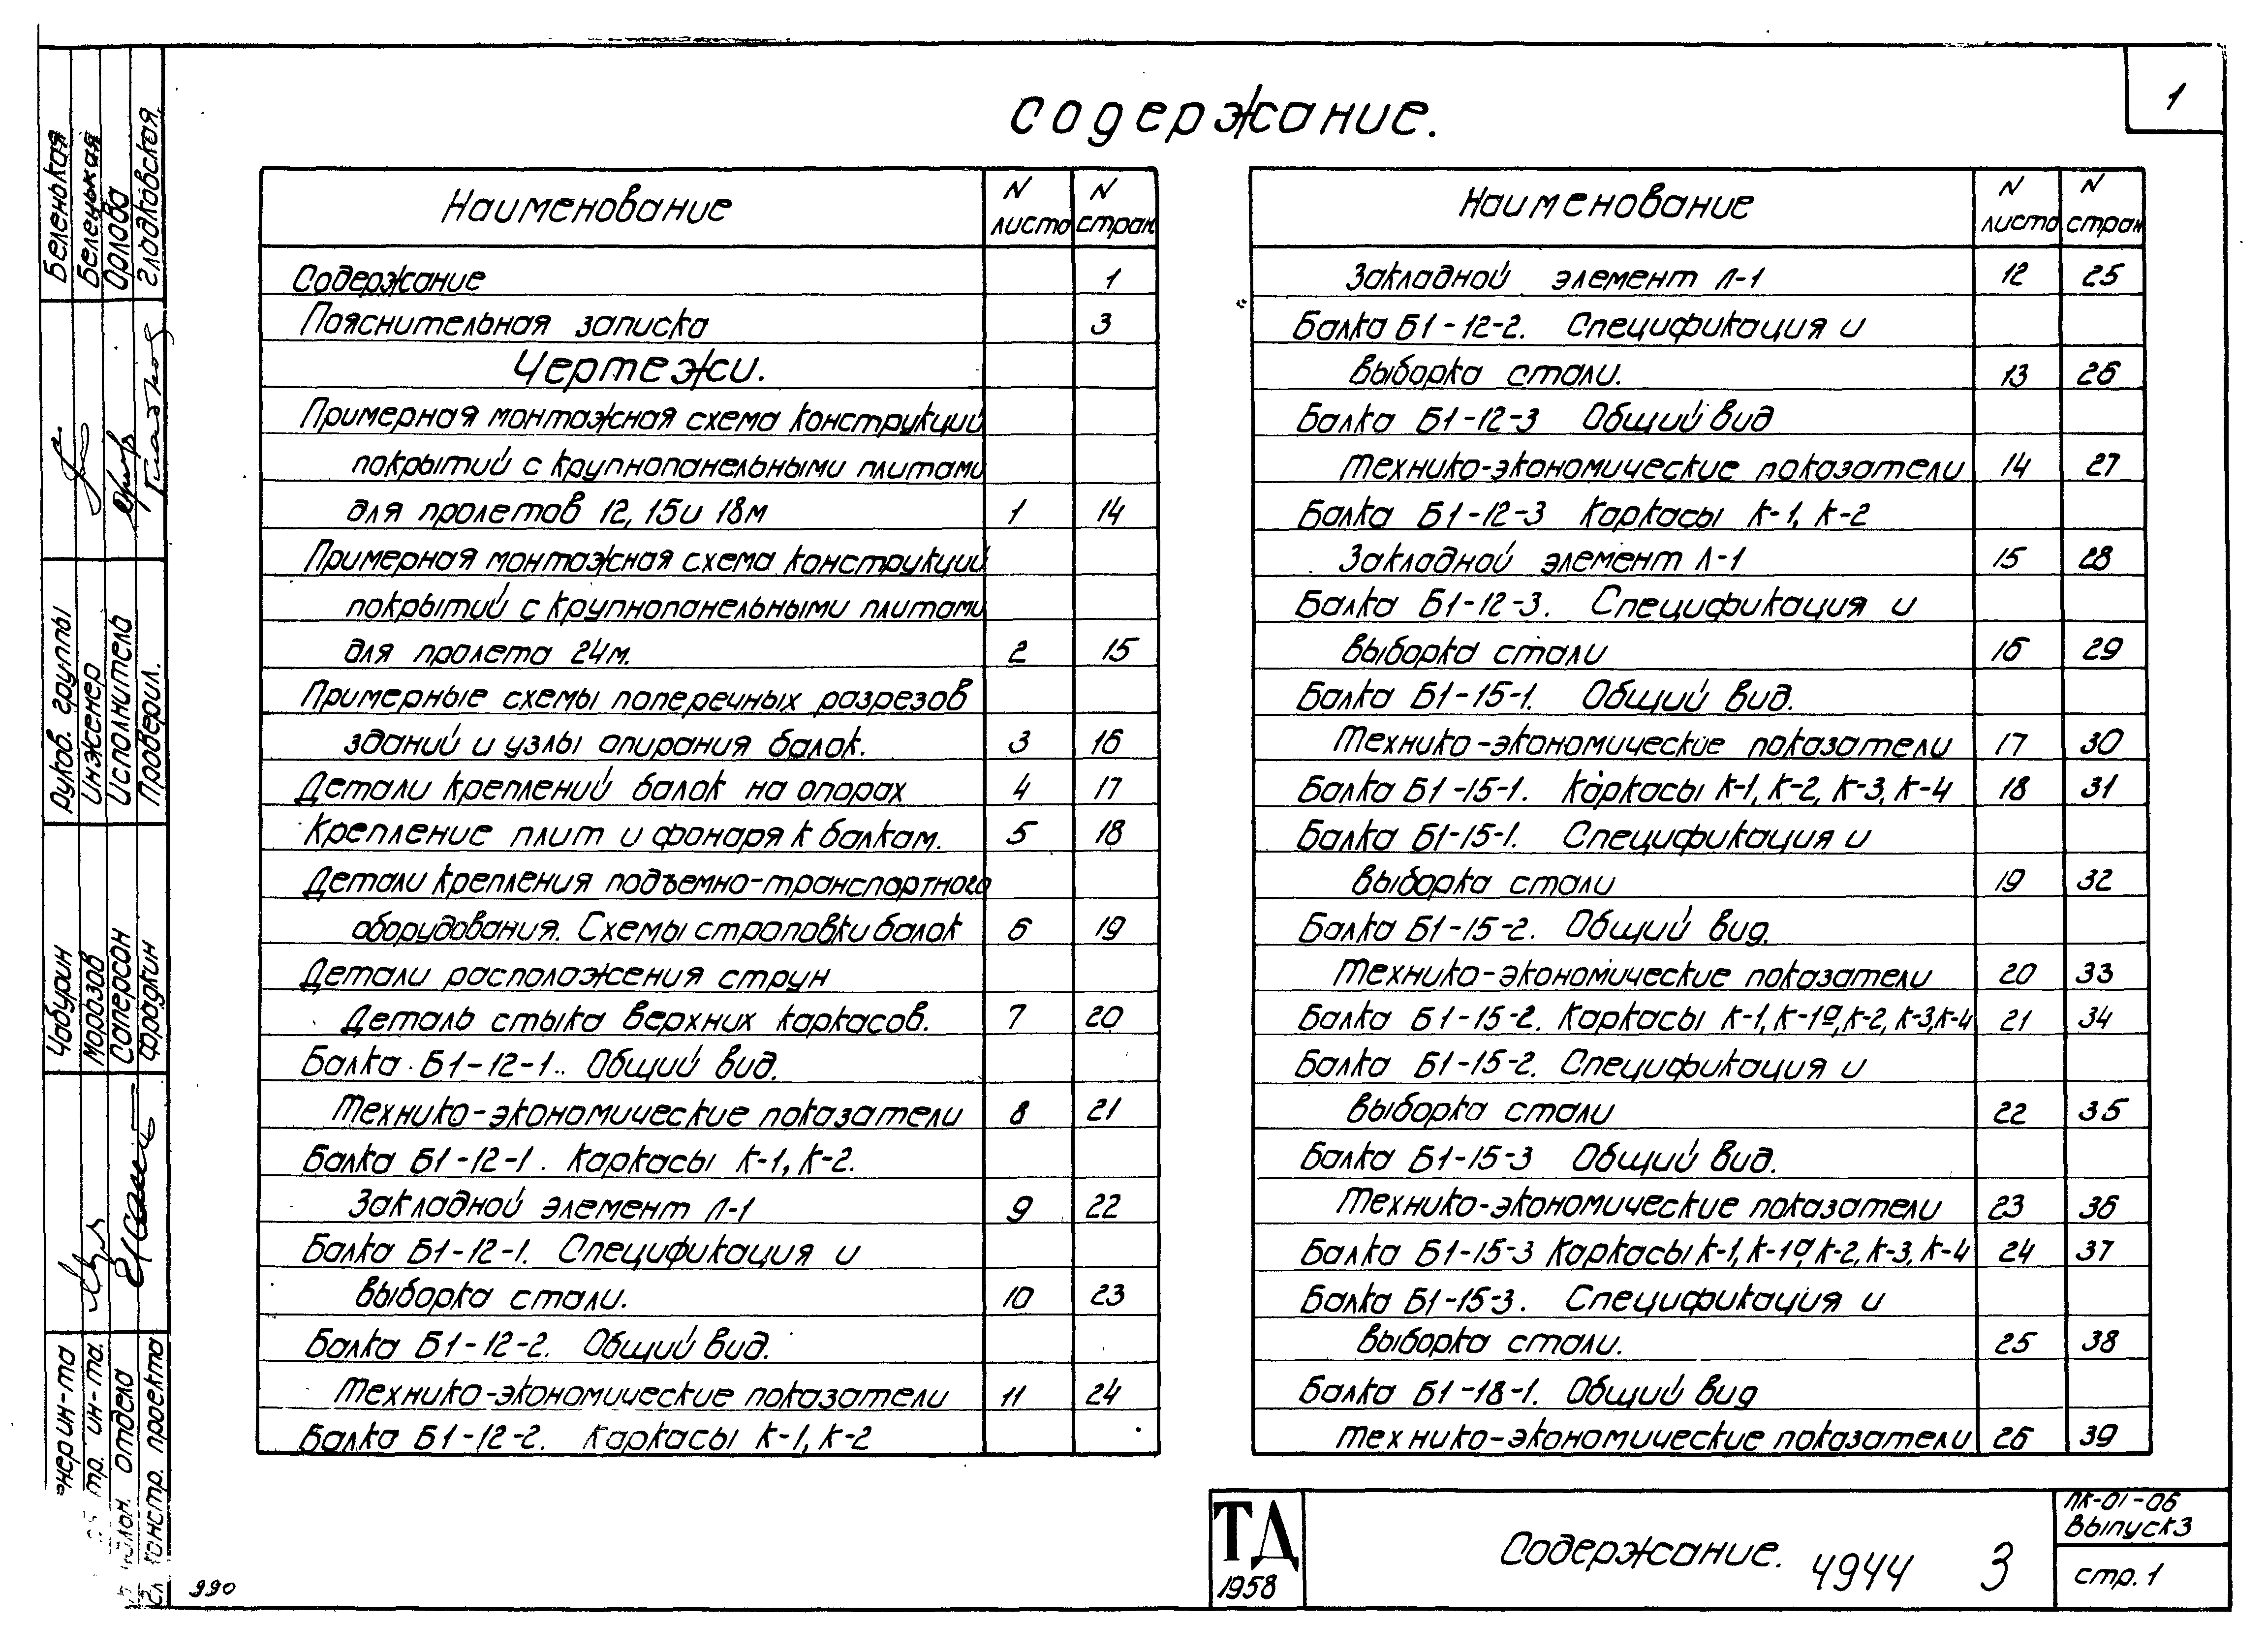 1
Содержание.
Наименование N листа N стран
Содержание 1
Пояснительная записка 3
Чертежи.
Примерная монтажная схема конструкций
покрытий с крупнопанельными плитами
для пролетов 12, 15 и 18м 1 14
Примерная монтажная схема конструкций
покрытий с крупнопанельными плитами
для пролета 24м. 2 15
Примерные схемы поперечных разрезов
зданий и узлы опирания балок. 3 16
Детали креплений балок на опорах 4 17
Крепление плит и фонаря к балкам. 5 18
Детали крепления подъемно-транспортного
оборудования. Схемы строповки балок 6 19
Детали расположения струн
Деталь стыка верхних каркасов. 7 20
Балка Б1-12-1. Общий вид.
Технико-экономические показатели 8 21
Балка Б1-12-1. Каркасы К-1, К-2.
Закладной элемент Л-1 9 22
Балка Б1-12-1. Спецификация и
выборка стали. 10 23
Балка Б1-12-2. Общий вид.
Технико-экономические показатели 11 24
Балка Б1-12-2. Каркасы К-1, К-2
Наименование N листа N стран
Закладной элемент Л-1 12 25
Балка Б1-12-2. Спецификация и
выборка стали. 13 26
Балка Б1-12-3 Общий вид
Технико-экономические показатели 14 27
Балка Б1-12-3 Каркасы К-1, К-2
Закладной элемент Л-1 15 28
Балка Б1-12-3. Спецификация и
выборка стали 16 29
Балка Б1-15-1. Общий вид.
Технико-экономические показатели 17 30
Балка Б1-15-1. Каркасы К-1, К-2, К-3, К-4 18 31
Балка Б1-15-1. Спецификация и
выборка стали 19 32
Балка Б1-15-2. Общий вид.
Технико-экономические показатели 20 33
Балка Б1-15-2. Каркасы К-1, К-1а, К-2, К-3, К-4 21 34
Балка Б1-15-2. Спецификация и
выборка стали 22 35
Балка Б1-15-3 Общий вид.
Технико-экономические показатели 23 36
Балка Б1-15-3 Каркасы К-1, К-1а, К-2, К-3, К-4 24 37
Балка Б1-15-3. Спецификация и
выборка стали. 25 38
Балка Б1-18-1. Общий вид
Технико-экономические показатели 26 39
ТД
1958
Содержание. 4944 3
ПК-01-06
Выпуск 3
стр. 1
990
Руков. группы Беленькая
Инженер Белецькая
Исполнитель Орлова
Проверил. Гладковская.
Чабурин
Морозов
Саперсон
Фрадкин
ин-та
ин-та.
отдела
проекта